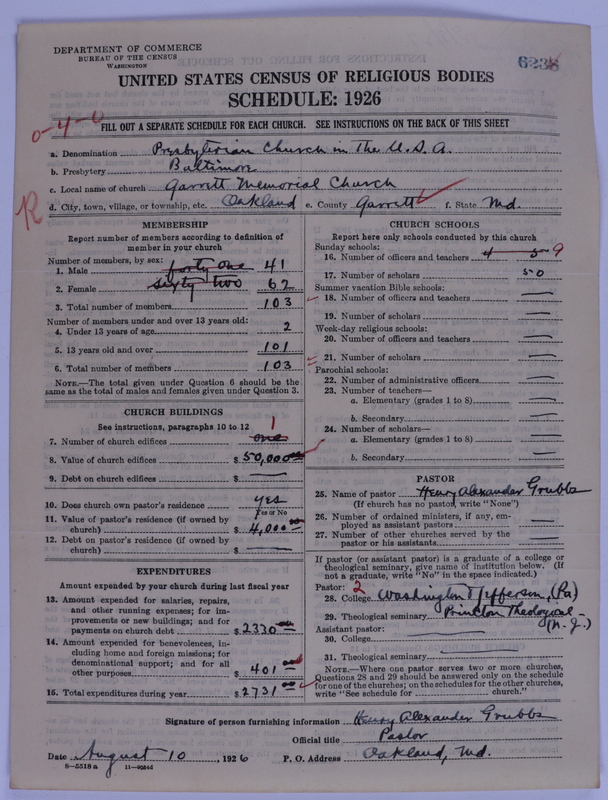 DEPARTMENT OF COMMERCE
BUREAU OF THE CENSUS
WASHINGTON
UNITED STATES CENSUS OF RELIGIOUS BODIES
SCHEDULE: 1926
0-4-0
FILL OUT A SEPARATE SCHEDULE FOR EACH CHURCH. SEE INSTRUCTIONS ON THE BACK OF THIS SHEET
a. Denomination Presbyterian Church in the U.S.A.
b. Presbytery Baltimore
c. Local name of church Garrett Memorial Church
d. City, town, village, or township, etc. Oakland e. County Garrett f. State Md.
MEMBERSHIP
Report number of members according to definition of
member in your church
Number of members, by sex:
1. Male forty one 41
2. Female sixty two 62
3. Total number of members 103
Number of members under and over 13 years old:
4. Under 13 years of age 2
5. 13 years old and over 101
6. Total number of members 103
NOTE.—The total given under Question 6 should be
the same as the total of males and females given under Question 3.
CHURCH BUILDINGS
See instructions, paragraphs 10 to 12
1
7. Number of church edifices one
8. Value of church edifices $50,000.00
9. Debt on church edifices $ —
10. Does church own pastor's residence yes
Yes or No
11. Value of pastor's residence (if owned by
church) $4,000.00
12. Debt on pastor's residence (if owned by
church) $ —
EXPENDITURES
Amount expended by your church during last fiscal year
13. Amount expended for salaries, repairs,
and other running expenses; for im-
provements or new buildings; and for
payments on church debt $2330.00
14. Amount expended for benevolences, in-
cluding home and foreign missions; for
denominational support; and for all
other purposes $401.00
15. Total expenditures during year $2731.00
CHURCH SCHOOLS
Report here only schools conducted by this church
Sunday schools:
16. Number of officers and teachers 9
17. Number of scholars 50
Summer vacation Bible schools:
18. Number of officers and teachers —
19. Number of scholars —
Week-day religious schools:
20. Number of officers and teachers —
21. Number of scholars —
Parochial schools:
22. Number of administrative officers —
23. Number of teachers—
a. Elementary (grades 1 to 8) —
b. Secondary —
24. Number of scholars—
a. Elementary (grades 1 to 8) —
b. Secondary —
PASTOR
25. Name of pastor Henry Alexander Grubbs
(If church has no pastor, write "None")
26. Number of ordained ministers, if any, em-
ployed as assistant pastors —
27. Number of other churches served by the
pastor or his assistants —
If pastor (or assistant pastor) is a graduate of a college or
theological seminary, give name of institution below. (If
not a graduate, write "No" in the space indicated.)
Pastor: 2
28. College Washington & Jefferson, (Pa)
29. Theological seminary Princeton Theological (N.J.)
Assistant pastor:
30. College —
31. Theological seminary —
NOTE.—Where one pastor serves two or more churches,
Questions 28 and 29 should be answered only on the schedule
for one of the churches; on the schedules for the other churches,
write "See schedule for church."
Signature of person furnishing information Henry Alexander Grubbs
Official title Pastor
Date August 10, 1926 P. O. Address Oakland, Md.
8—5518 a